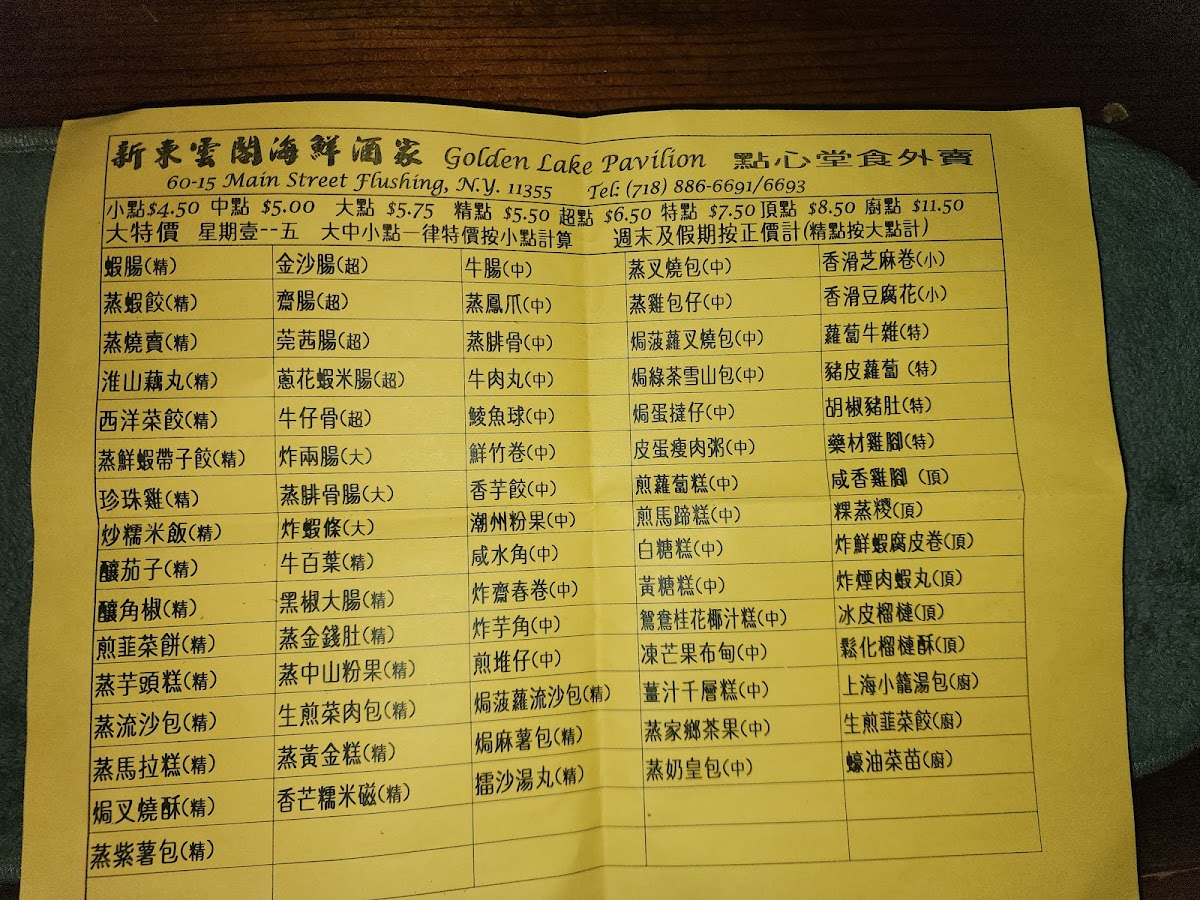 新東雲閣海鮮酒家 Golden Lake Pavilion 點心堂食外賣
60-15 Main Street Flushing, N.Y. 11355 Tel: (718) 886-6691/6693
小點$4.50 中點 $5.00 大點 $5.75 精點 $5.50 超點 $6.50 特點 $7.50 頂點 $8.50 廚點 $11.50
大特價 星期壹--五 大中小點一律特價按小點計算 週末及假期按正價計(精點按大點計)
蝦腸(精) 金沙腸(超) 牛腸(中) 蒸叉燒包(中) 香滑芝麻卷(小)
蒸蝦餃(精) 齋腸(超) 蒸鳳爪(中) 蒸雞包仔(中) 香滑豆腐花(小)
蒸燒賣(精) 莞茜腸(超) 蒸腓骨(中) 焗菠蘿叉燒包(中) 蘿蔔牛雜(特)
淮山藕丸(精) 蔥花蝦米腸(超) 牛肉丸(中) 焗綠茶雪山包(中) 豬皮蘿蔔 (特)
西洋菜餃(精) 牛仔骨(超) 鯪魚球(中) 焗蛋撻仔(中) 胡椒豬肚(特)
蒸鮮蝦帶子餃(精) 炸兩腸(大) 鮮竹卷(中) 皮蛋瘦肉粥(中) 藥材雞腳(特)
珍珠雞(精) 蒸腓骨腸(大) 香芋餃(中) 煎蘿蔔糕(中) 咸香雞腳 (頂)
炒糯米飯(精) 炸蝦條(大) 潮州粉果(中) 煎馬蹄糕(中) 粿蒸糭(頂)
釀茄子(精) 牛百葉(精) 咸水角(中) 白糖糕(中) 炸鮮蝦腐皮卷(頂)
釀角椒(精) 黑椒大腸(精) 炸齋春卷(中) 黃糖糕(中) 炸煙肉蝦丸(頂)
煎韮菜餅(精) 蒸金錢肚(精) 炸芋角(中) 鴛鴦桂花椰汁糕(中) 冰皮榴槤(頂)
蒸芋頭糕(精) 蒸中山粉果(精) 煎堆仔(中) 凍芒果布甸(中) 鬆化榴槤酥(頂)
蒸流沙包(精) 生煎菜肉包(精) 焗菠蘿流沙包(精) 薑汁千層糕(中) 上海小籠湯包(廚)
蒸馬拉糕(精) 蒸黃金糕(精) 焗麻薯包(精) 蒸家鄉茶果(中) 生煎韮菜餃(廚)
焗叉燒酥(精) 香芒糯米磁(精) 擂沙湯丸(精) 蒸奶皇包(中) 蠔油菜苗(廚)
蒸紫薯包(精)